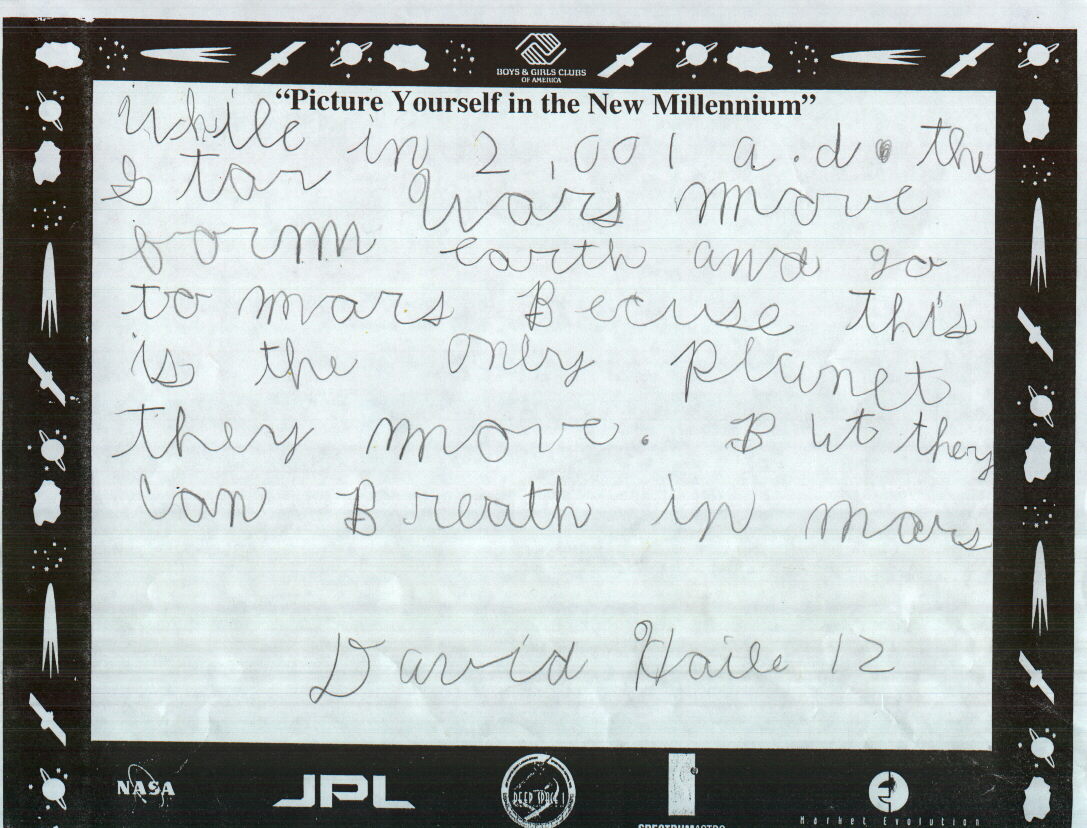 BOYS & GIRLS CLUBS
OF AMERICA
“Picture Yourself in the New Millennium”
While in 2,001 a.d. the
Star Wars move
form earth and go
to mars Becuse this
is the only planet
they move. But they
can Breath in mars
David Haile 12
NASA
JPL
DEEP SPACE 1
SPECTRUMASTRO
Market Evolution